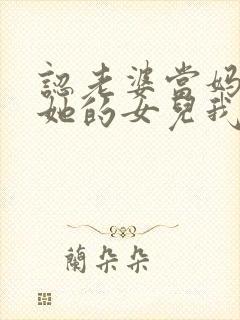 認老婆當妈
她的女兒我
蘭朵朵